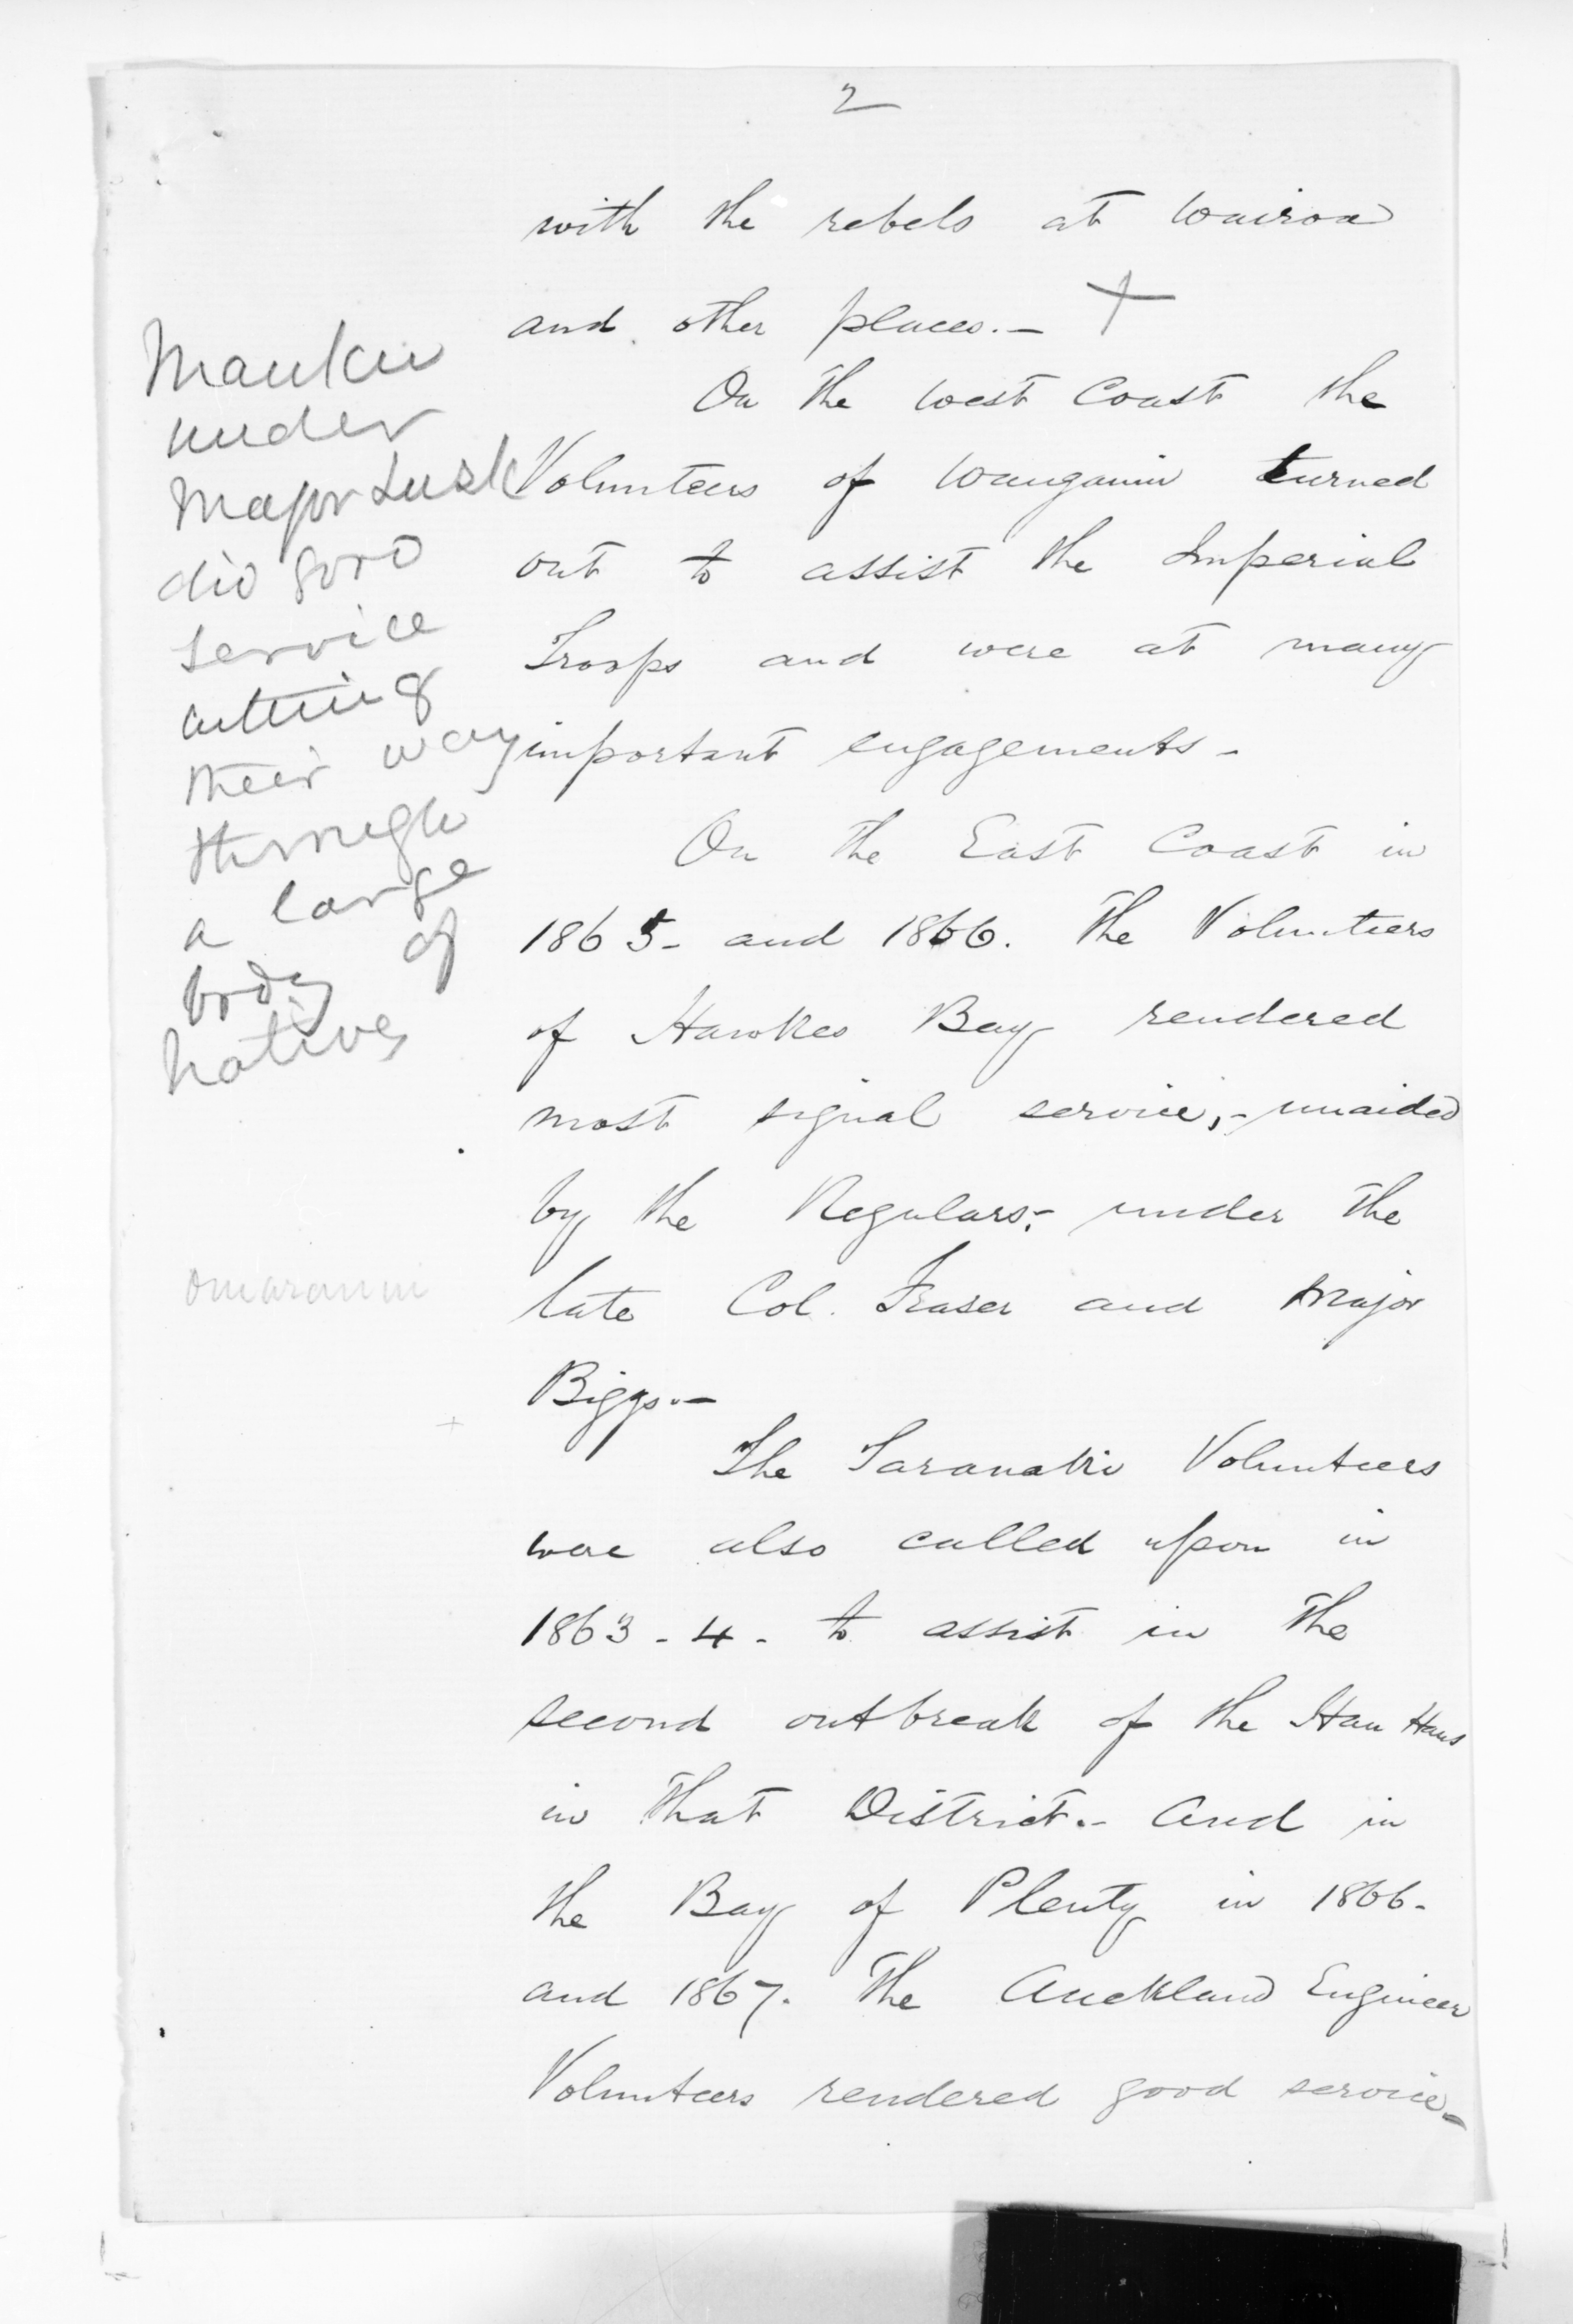 2
with the rebels at Wairoa
and other places. — +
On the West Coast the
Volunteers of Wanganui turned
out to assist the Imperial
Troops and were at many
important engagements -
On the East Coast in
1865 - and 1866. The Volunteers
of Hawkes Bay rendered
most signal service, - unaided
by the Regulars; - under the
late Col. Fraser and Major
Biggs. —
The Taranaki Volunteers
were also called upon in
1863 - 4 - to assist in the
second outbreak of the Hau Haus
in that District. - And in
the Bay of Plenty in 1866 -
and 1867. The Auckland Engineer
Volunteers rendered good service -
Mauku
under
Major Lusk
did good
service
cutting
their way
through
a large
body of
natives
Omaranui
+